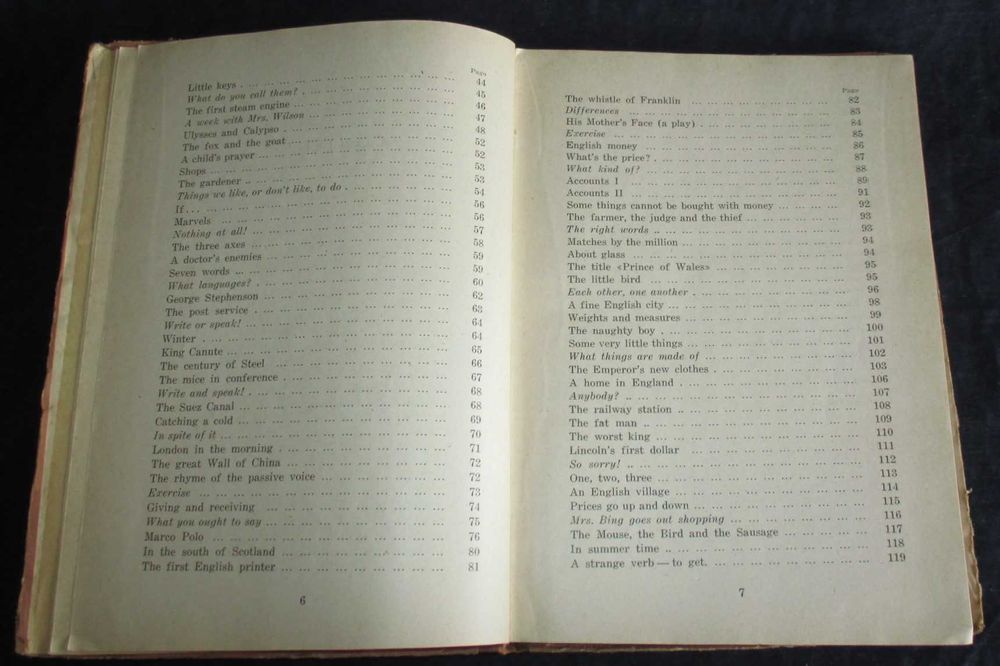 Page
Little keys ... 44
What do you call them? ... 45
The first steam engine ... 46
A week with Mrs. Wilson ... 47
Ulysses and Calypso ... 48
The fox and the goat ... 52
A child's prayer ... 52
Shops ... 53
The gardener ... 53
Things we like, or don't like, to do ... 54
If... ... 56
Marvels ... 56
Nothing at all! ... 57
The three axes ... 58
A doctor's enemies ... 59
Seven words ... 59
What languages? ... 60
George Stephenson ... 62
The post service ... 63
Write or speak! ... 64
Winter ... 64
King Canute ... 65
The century of Steel ... 66
The mice in conference ... 67
Write and speak! ... 68
The Suez Canal ... 68
Catching a cold ... 69
In spite of it ... 70
London in the morning ... 71
The great Wall of China ... 72
The rhyme of the passive voice ... 72
Exercise ... 73
Giving and receiving ... 74
What you ought to say ... 75
Marco Polo ... 76
In the south of Scotland ... 80
The first English printer ... 81
6
Page
The whistle of Franklin ... 82
Differences ... 83
His Mother's Face (a play) ... 84
Exercise ... 85
English money ... 86
What's the price? ... 87
What kind of? ... 88
Accounts I ... 89
Accounts II ... 91
Some things cannot be bought with money ... 92
The farmer, the judge and the thief ... 93
The right words ... 93
Matches by the million ... 94
About glass ... 94
The title «Prince of Wales» ... 95
The little bird ... 95
Each other, one another ... 96
A fine English city ... 98
Weights and measures ... 99
The naughty boy ... 100
Some very little things ... 101
What things are made of ... 102
The Emperor's new clothes ... 103
A home in England ... 106
Anybody? ... 107
The railway station ... 108
The fat man ... 109
The worst king ... 110
Lincoln's first dollar ... 111
So sorry! ... 112
One, two, three ... 113
An English village ... 114
Prices go up and down ... 115
Mrs. Bing goes out shopping ... 116
The Mouse, the Bird and the Sausage ... 117
In summer time ... 118
A strange verb — to get. ... 119
7